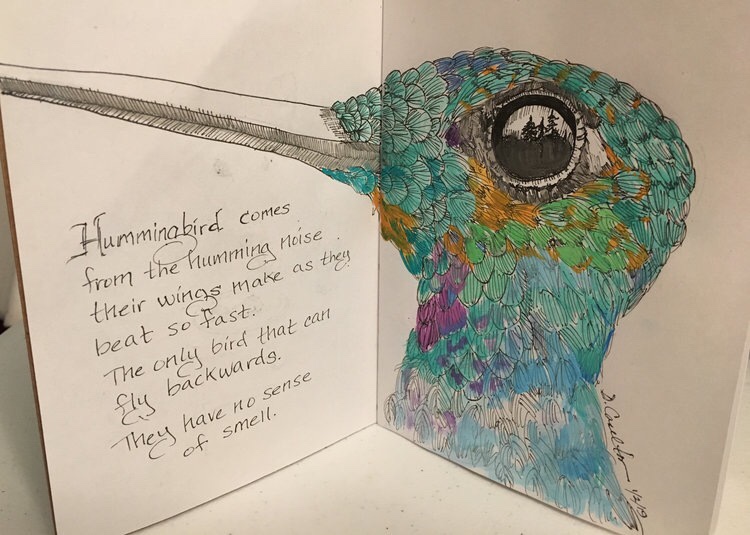 Hummingbird comes
from the humming noise
their wings make as they
beat so fast.
The only bird that can
fly backwards.
They have no sense
of smell.
D.